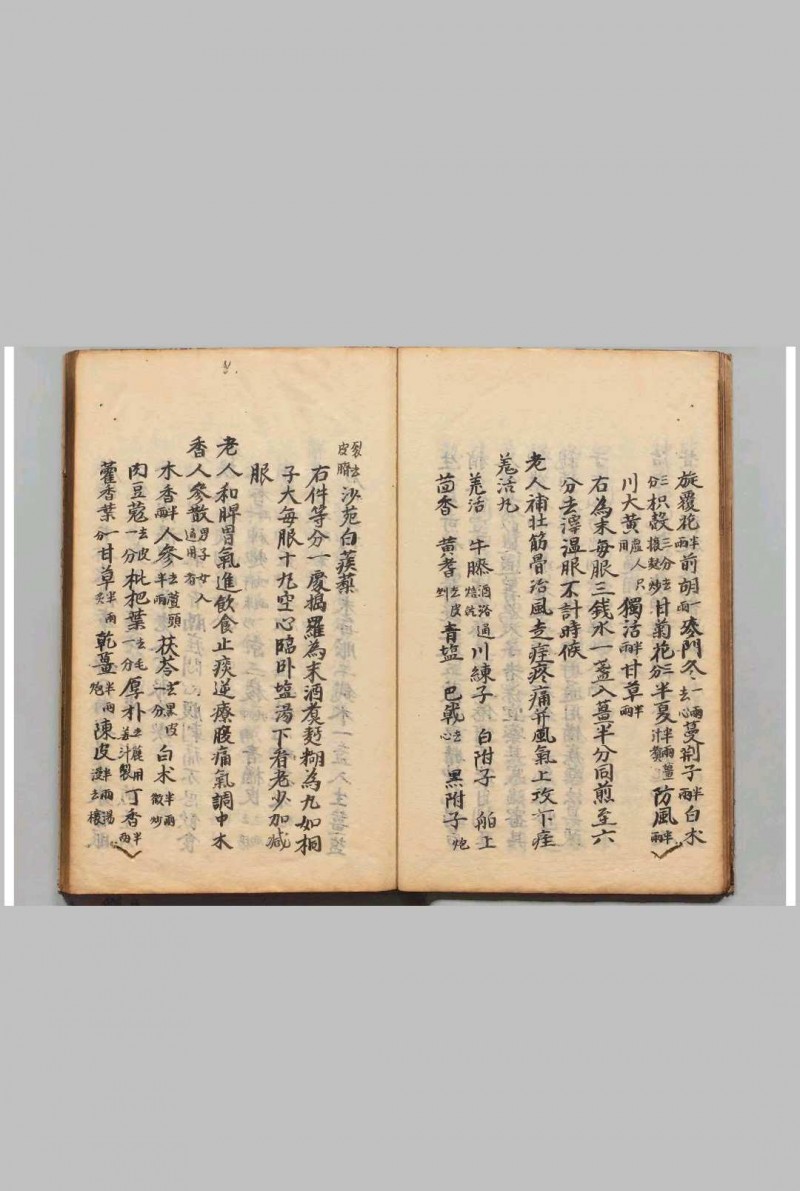 旋覆花半兩前胡一兩麥門冬一兩去心蔓荆子半兩白朮
三分枳殼三分去穰麸炒甘菊花三分半夏半兩薑汁製防風半兩
川大黃虛人只用獨活半兩甘草半兩
右為末每服三錢水一盞入薑半分同煎至六
分去滓溫服不計時候
老人補壯筋骨治風走疰疼痛并風氣上攻下疰
羌活丸
羌活 牛膝酒浴焙乾過川練子 白附子 舶上
茴香 黃耆去皮剉青塩 巴戟去心 黑附子炮
裂去皮臍沙苑白蒺藜
右件等分一處搗羅為末酒煮麪糊為丸如桐
子大每服十丸空心臨卧塩湯下看老少加減
服
老人和脾胃氣進飲食止痰逆療腹痛氣調中木
香人參散男子女人通用有
木香半兩人參去蘆頭半兩茯苓去黑皮一分白朮半兩微炒
肉豆蔻去皮一分枇杷葉去毛一分厚朴去麄用薑汁製丁香半兩
藿香葉一分甘草半兩炙乾薑半兩炮陳皮半兩湯浸去穰